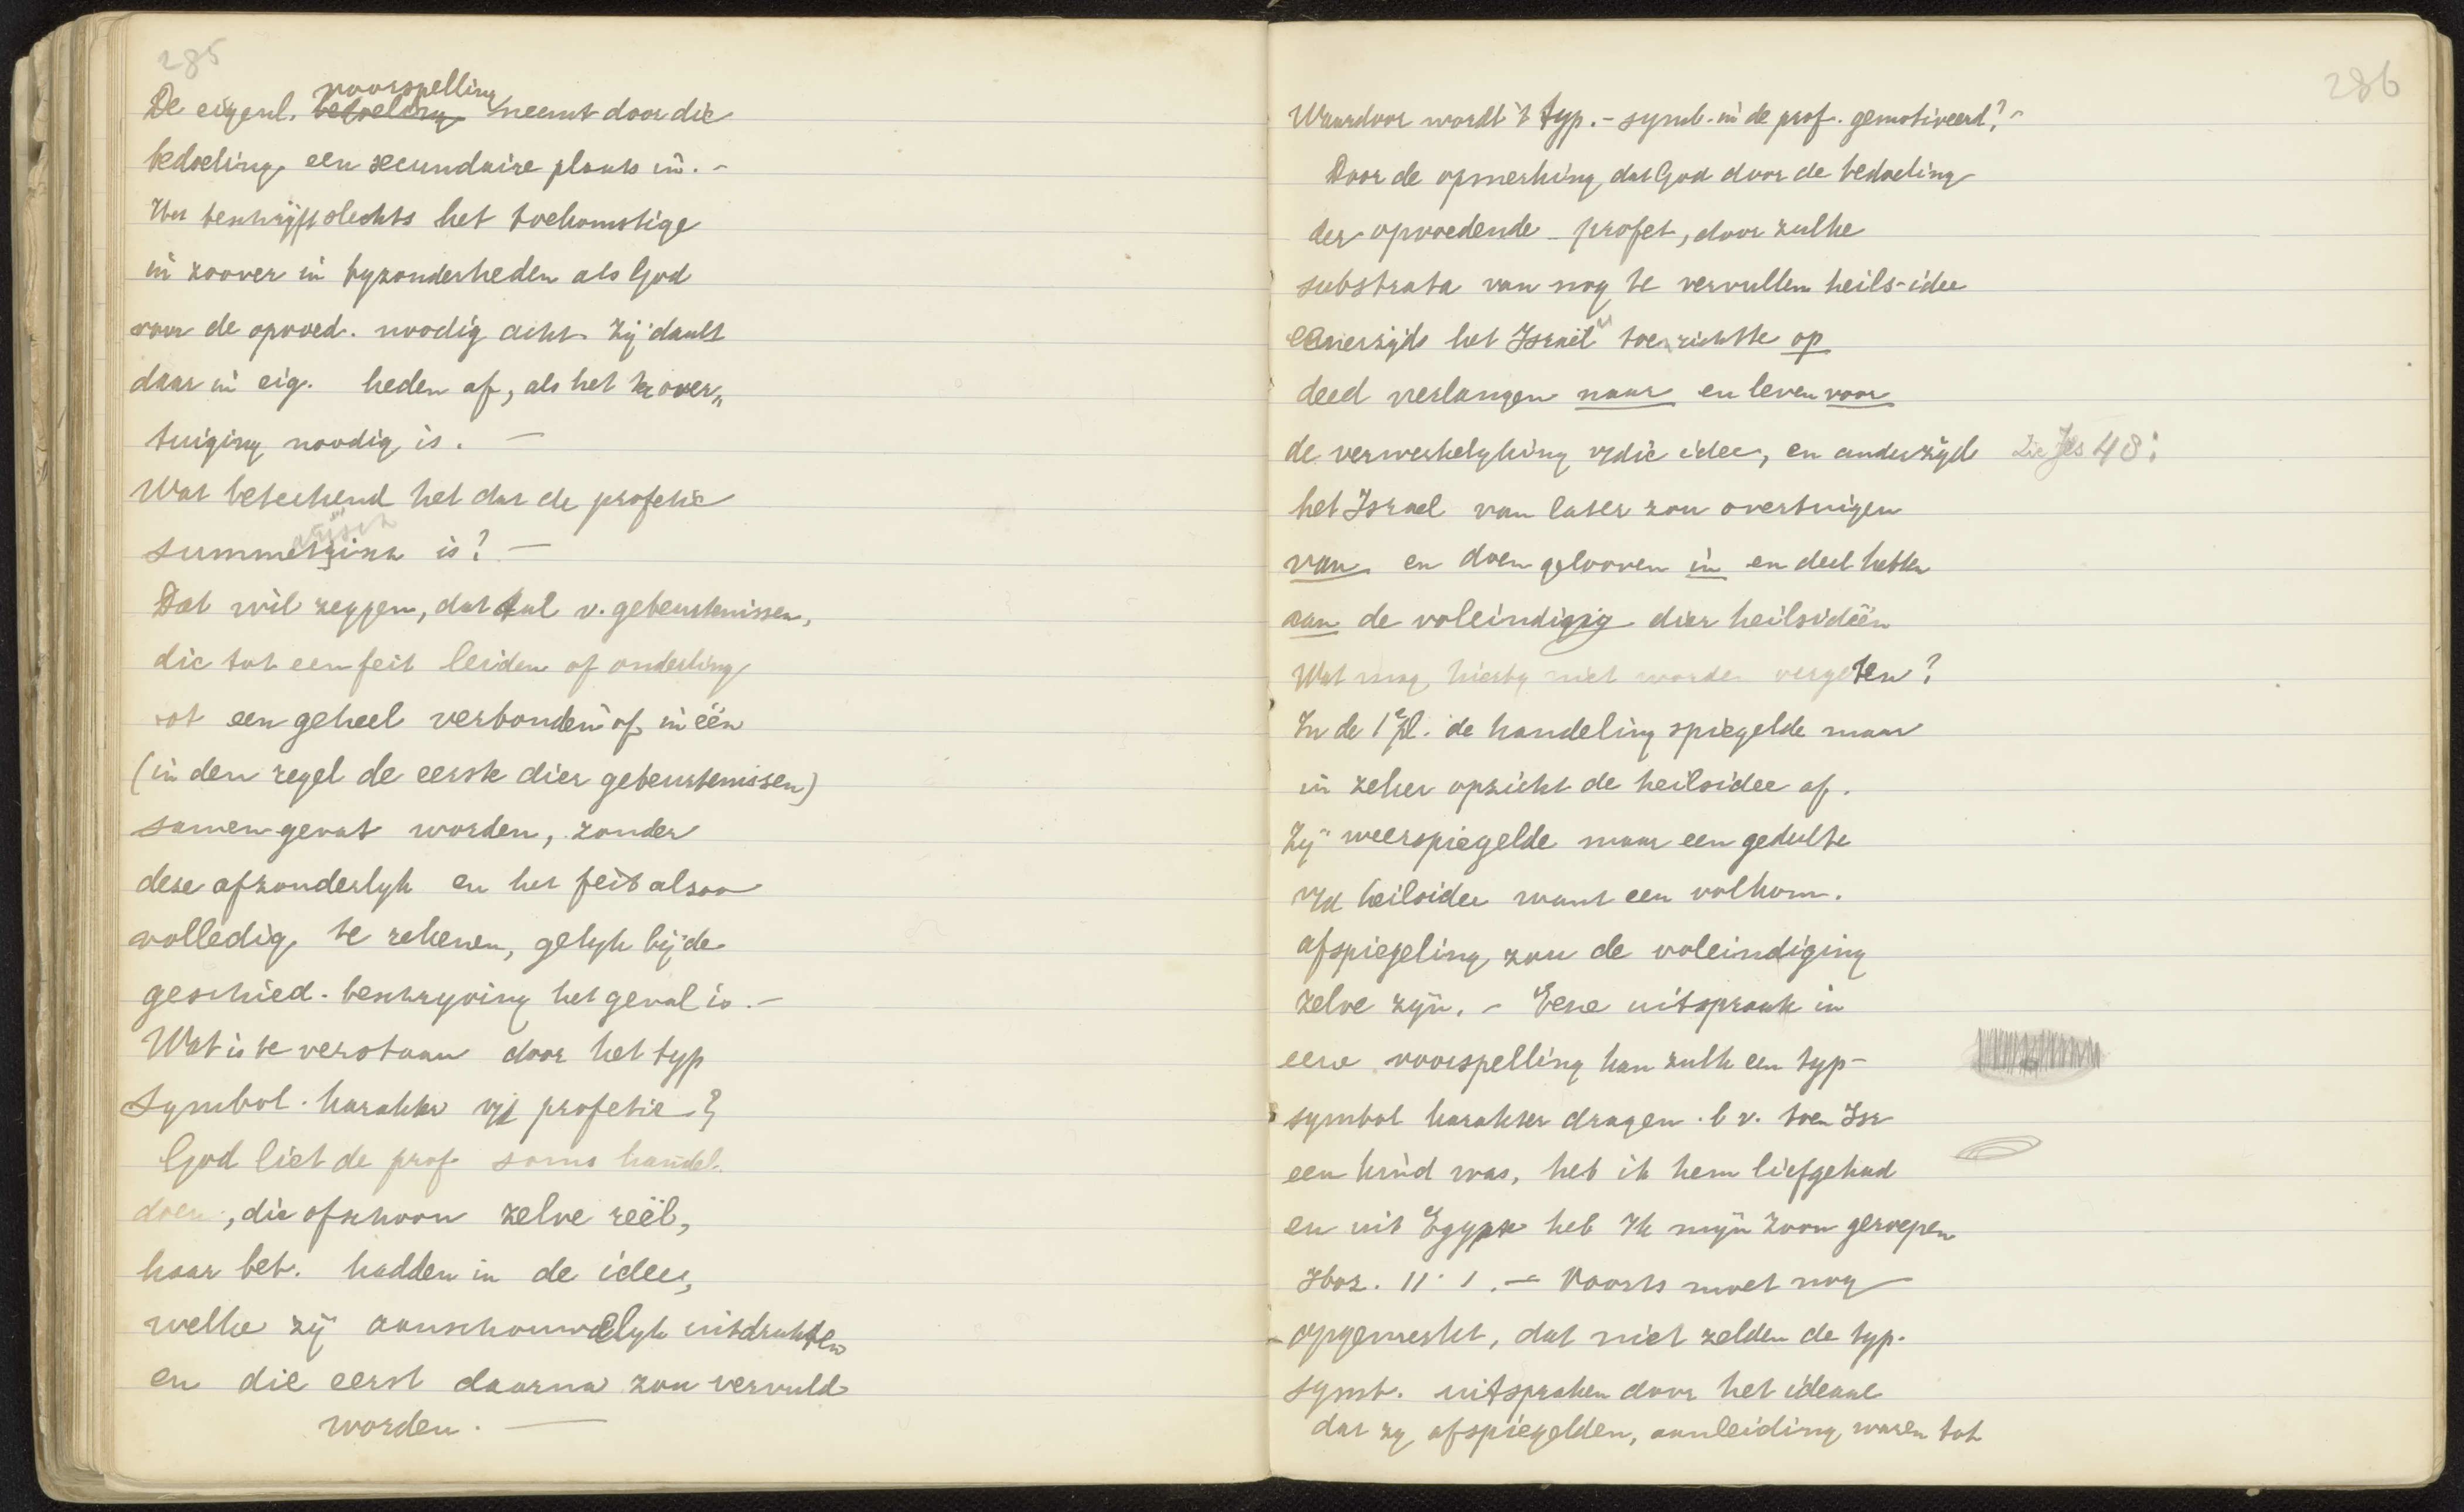 285
voorspelling
De eigenl. bedoeling neemt door die
bedoeling een secundaire plaats in. -
Het beschrijft slechts het toekomstige
in zoover in byzonderheden als God
voor de opvoed. noodig acht. Zij daalt
daar in eig. heden af, als het ter over„
tuiging noodig is. —
Wat beteekend het dat de profetie
summarisch is? —
Dat wil zeggen, dat tal v. gebeurtenissen,
die tot een feit leiden of onderling
tot een geheel verbonden of in één
(in den regel de eerste dier gebeurtenissen)
samengevat worden, zonder
deze afzonderlyk en het feit alzoo
volledig te tekenen, gelyk bij de
geschied-beschryving het geval is. -
Wat is te verstaan door het typ
symbol. karakter v/d profetie?
God liet de prof. soms handel.
doen, die ofschoon zelve reëel,
haar bet. hadden in de idee,
welke zij aanschouwelyk uitdrukten
en die eerst daarna zou vervuld
worden. —
286
Waardoor wordt 't typ.-symb. in de prof. gemotiveerd? -
Door de opmerking dat God door de bedoeling
der opvoedende profet, door zulke
substrata van nog te vervullen heils-idee
eenerzijds het Israël toen richtte op
deed verlangen naar en leven voor
de verwerkelyking v/die idee, en anderzijds Zie Jes 48:
het Israel van later zou overtuigen
van en doen gelooven in en deel hebben
aan de voleindiging dier heilsideën
Wat mag hierby niet worden vergeten?
In de 1e pl. de handeling spiegelde maar
in zeker opzicht de heilsidee af.
Zij weerspiegelde maar een gedeelte
v/d heilsidee want een volkom.
afspiegeling zou de voleindiging
zelve zijn. - Eene uitspraak in
eene voorspelling kan zulk een typ-
symbol karakter dragen. b v. toen Isr
een kind was, heb ik hem liefgehad
en uit Egypte heb Ik mijn zoon geroepen
Hos. 11: 1. — Voorts moet nog
opgemerkt, dat niet zelden de typ.
symb. uitspraken door het ideaal
dat zy afspiegelden, aanleiding waren tot